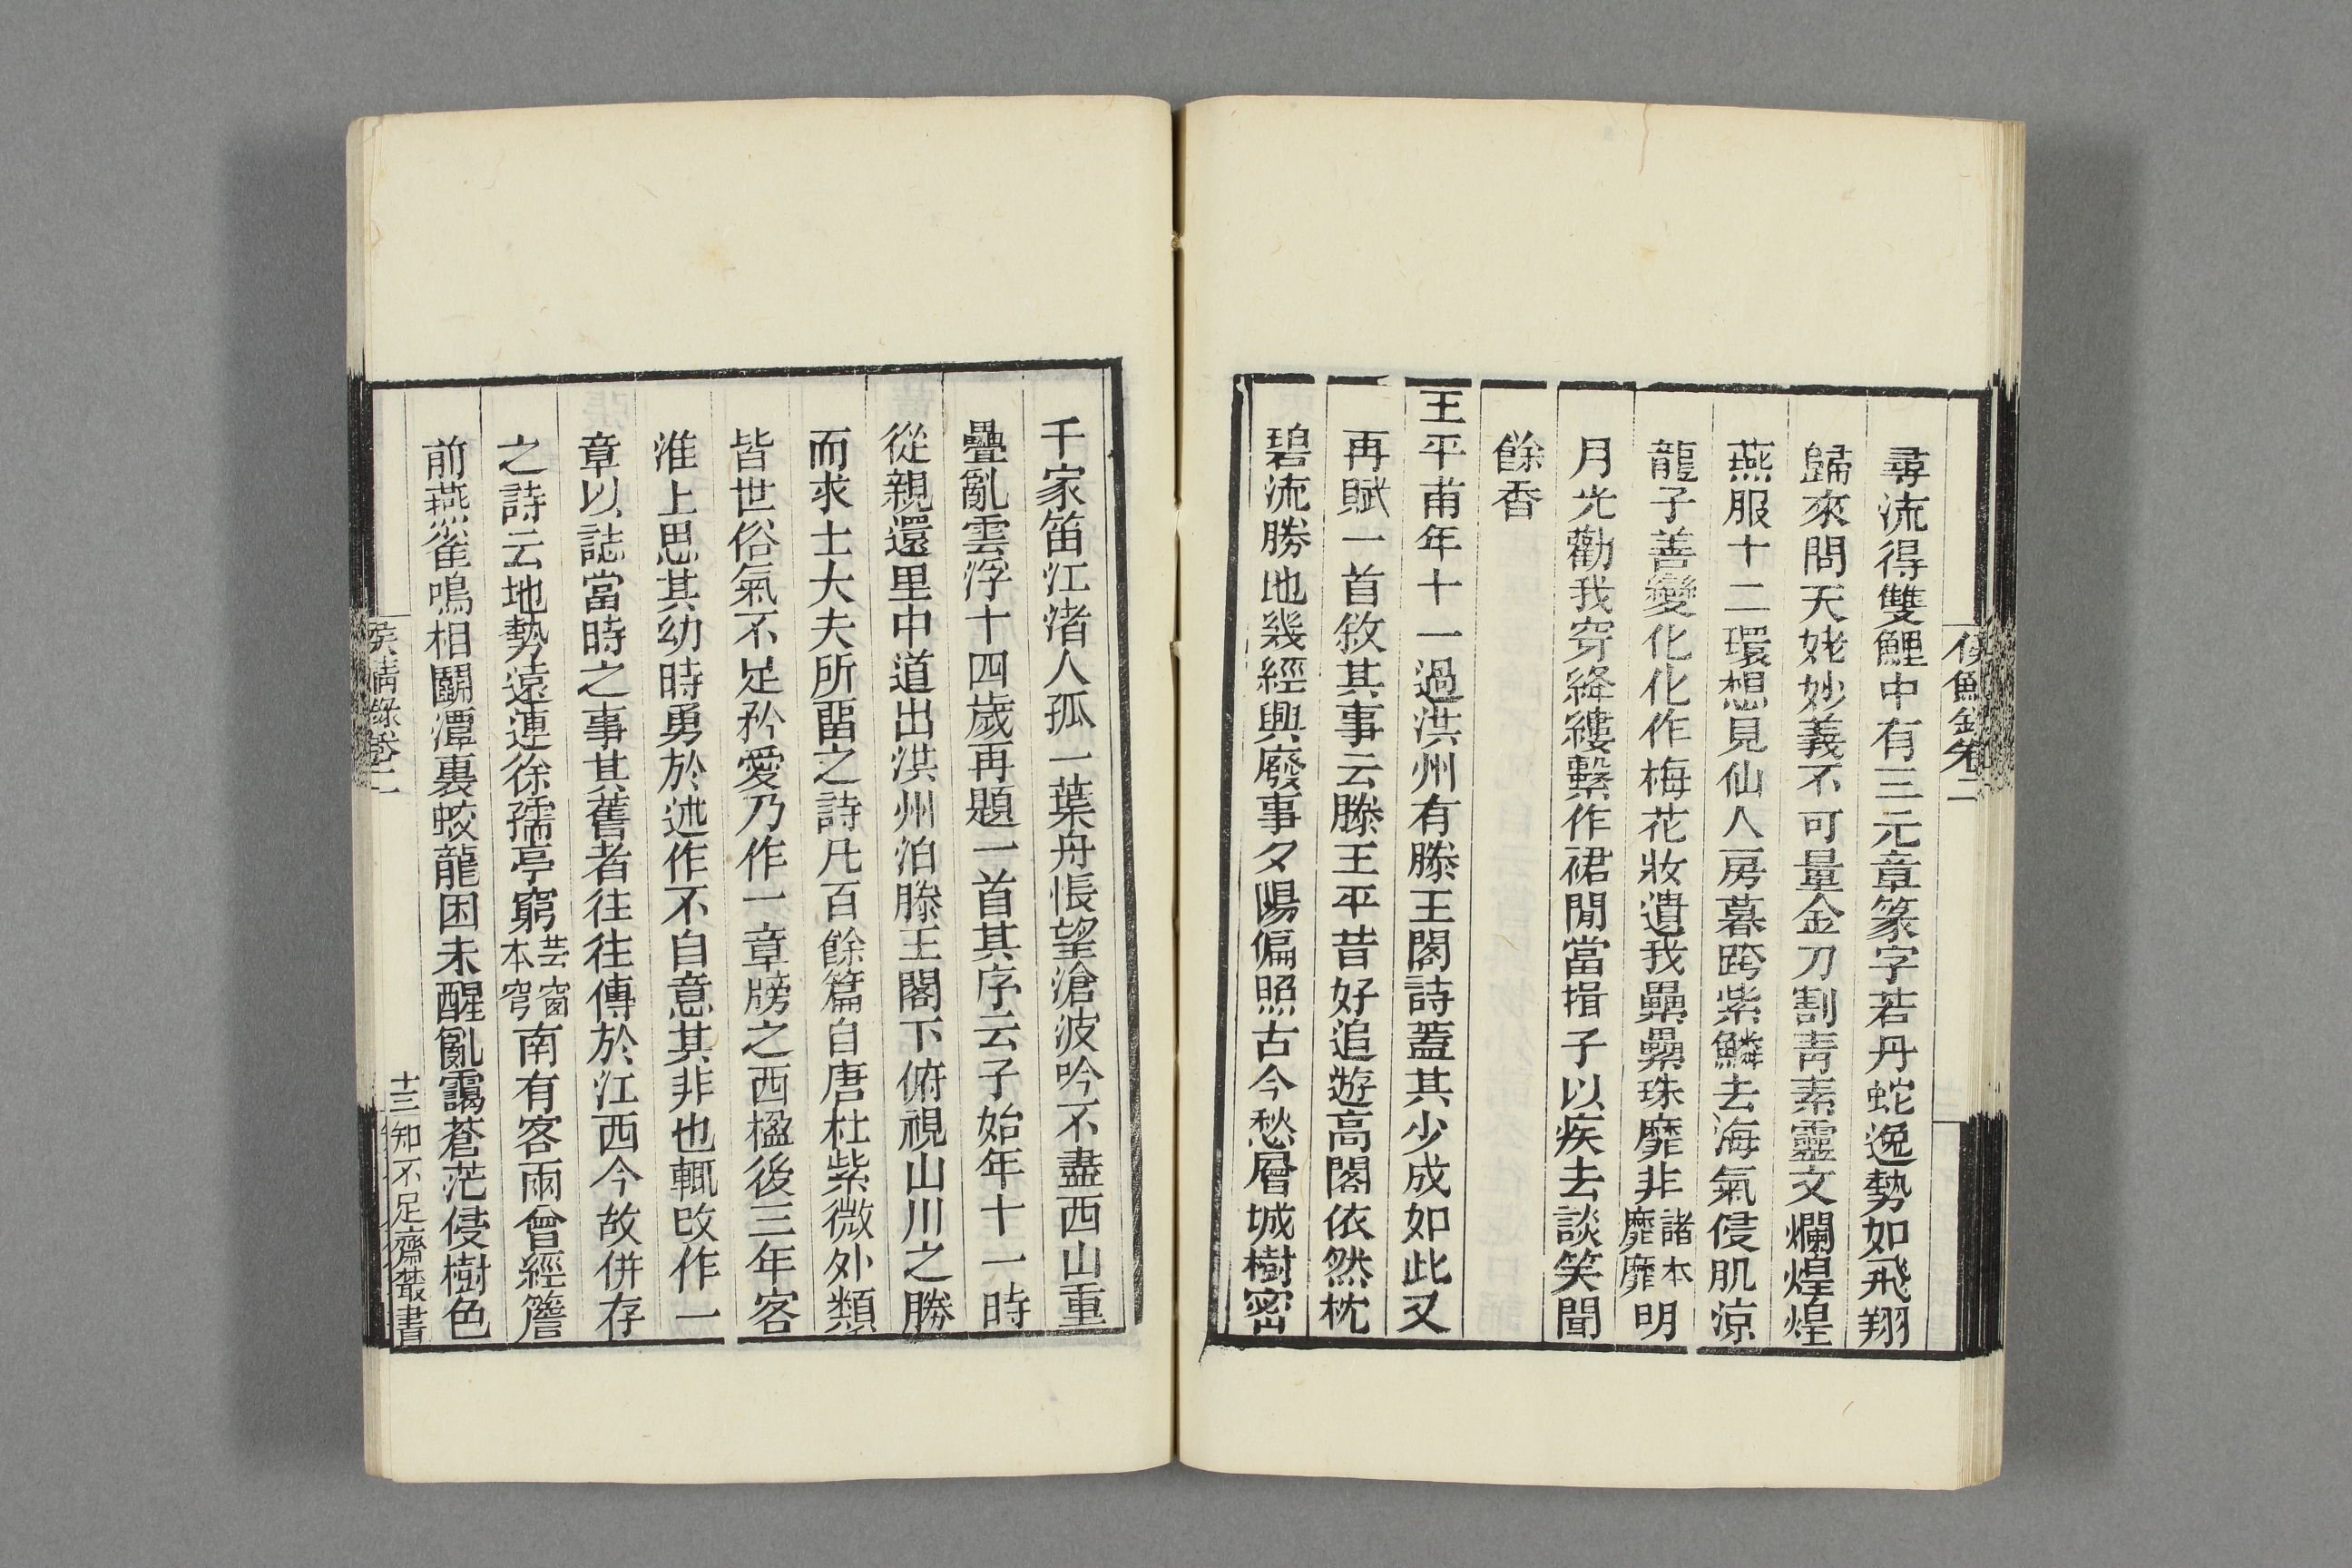 尋流得雙鯉中有三元章篆字若丹蛇逸勢如飛翔
歸來問天姥妙義不可量金刀割青素靈文爛煌煌
燕服十二環想見仙人房暮跨紫鱗去海氣侵肌涼
龍子善變化化作梅花妝遺我纍纍珠靡非諸本靡靡明
月光勸我穿絳縷繫作裙間當揖子以疾去談笑聞
餘香
王平甫年十一過洪州有滕王閣詩蓋其少成如此又
再賦一首敘其事云滕王平昔好追遊高閣依然枕
碧流勝地幾經興廢事夕陽偏照古今愁層城樹密
千家笛江渚人孤一葉舟悵望滄波吟不盡西山重
疊亂雲浮十四歲再題一首其序云子始年十一時
從親還里中道出洪州泊滕王閣下俯視山川之勝
而求士大夫所畱之詩凡百餘篇自唐杜紫微外類
皆世俗氣不足矜愛乃作一章牓之西楹後三年客
淮上思其幼時勇於述作不自意其非也輒改作一
章以誌當時之事其舊者往往傳於江西今故併存
之詩云地勢遠連徐孺亭窮芸窗本穹南有客雨曾經簷
前燕雀鳴相鬭潭裏蛟龍困未醒亂靄蒼茫侵樹色
侯鯖錄卷二
十三
知不足齋叢書